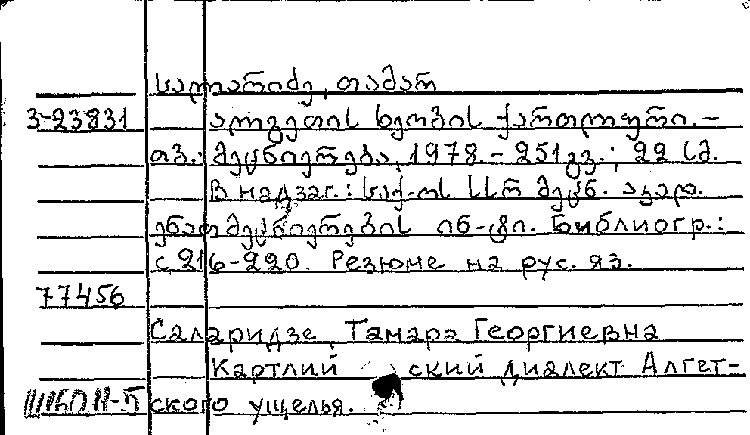 სალარიძე, თამარ
3-23831 ალგეთის ხეობის ქართლური. –
თბ.: მეცნიერება, 1978. – 251 გვ.; 22 სმ.
В надзаг.: საქ-ოს სსრ მეცნ. აკად.
ენათმეცნიერების ინ-ტი. Библиогр.:
с. 216-220. Резюме на рус. яз.
77456
Саларидзе, Тамара Георгиевна
Картлий ский диалект Алгет-
ского ущелья.